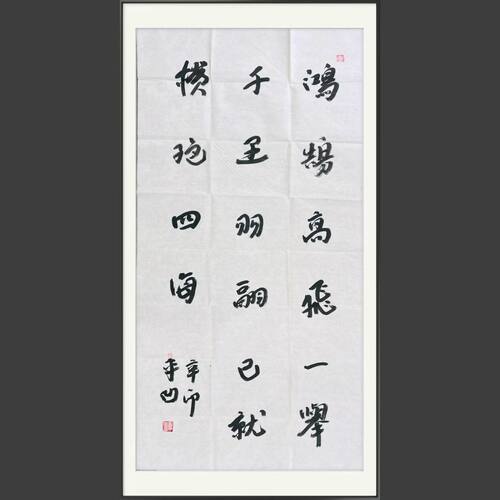 鴻鵠高飛一舉
千里羽翮已就
橫絕四海
辛卯
平凹